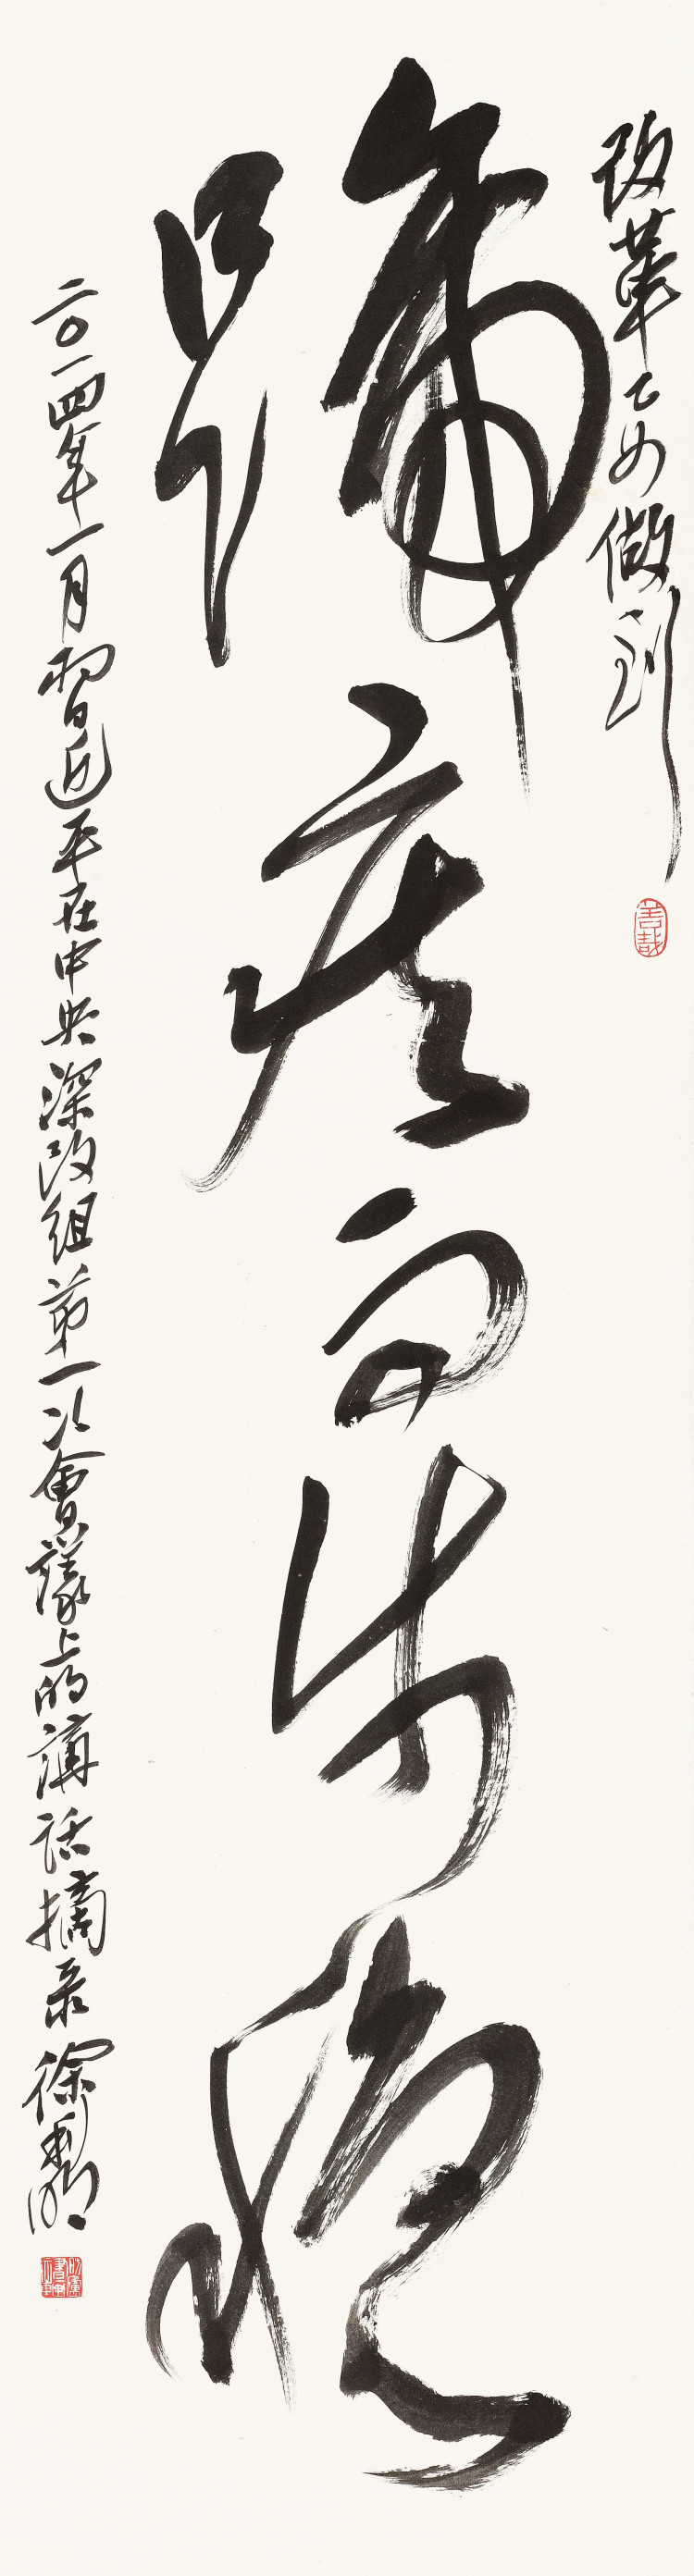 改革要做到
蹄疾而步穩
二〇一四年一月習近平在中央深改組第一次會議上的講話摘录 徐利明
善哉